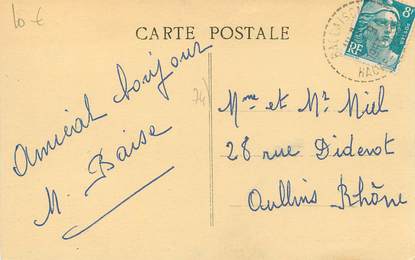 10 €
CARTE POSTALE
amical bonjour
M. Baise
74
Mme et Mr Miel
28 rue Diderot
Oullins Rhône
8F
RF
BALLAISON